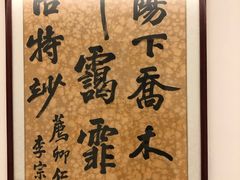 陽下喬木
靄霏
特妙
薦卿
李宗